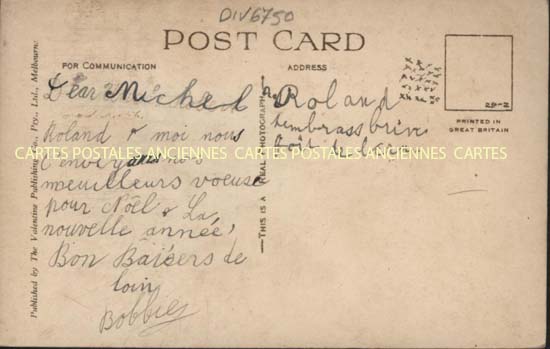 DIV6750
POST CARD
FOR COMMUNICATION
ADDRESS
Dear Michel
Roland & moi nous
t'envoyons nos
meuilleurs voeuse
pour Noël & La
nouvelle année,
Bon Baisers de
loin
Bobbie
Roland
tembrass
PRINTED IN
GREAT BRITAIN
THIS IS A REAL PHOTOGRAPH
Published by The Valentine Publishing Co., Pty., Ltd., Melbourne.
CARTES POSTALES ANCIENNES CARTES POSTALES ANCIENNES CARTES